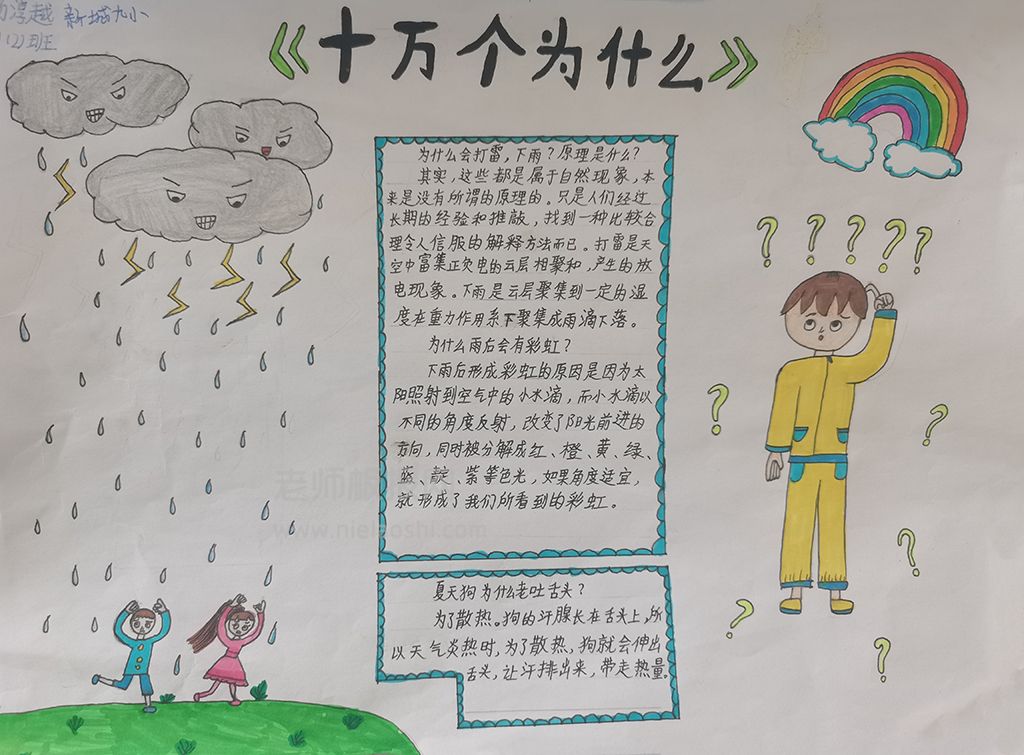 淳越 新城九小
(2)班
《十万个为什么》
为什么会打雷，下雨？原理是什么？
其实，这些都是属于自然现象，本
来是没有所谓的原理的。只是人们经过
长期的经验和推敲，找到一种比较合
理令人信服的解释方法而已。打雷是天
空中富集正负电的云层相聚和，产生的放
电现象。下雨是云层聚集到一定的湿
度在重力作用系下聚集成雨滴下落。
为什么雨后会有彩虹？
下雨后形成彩虹的原因是因为太
阳照射到空气中的小水滴，而小水滴以
不同的角度反射，改变了阳光前进的
方向，同时被分解成红、橙、黄、绿、
蓝、靛、紫等色光，如果角度适宜，
就形成了我们所看到的彩虹。
夏天狗为什么老吐舌头？
为了散热。狗的汗腺长在舌头上，所
以天气炎热时，为了散热，狗就会伸出
舌头，让汗排出来，带走热量。